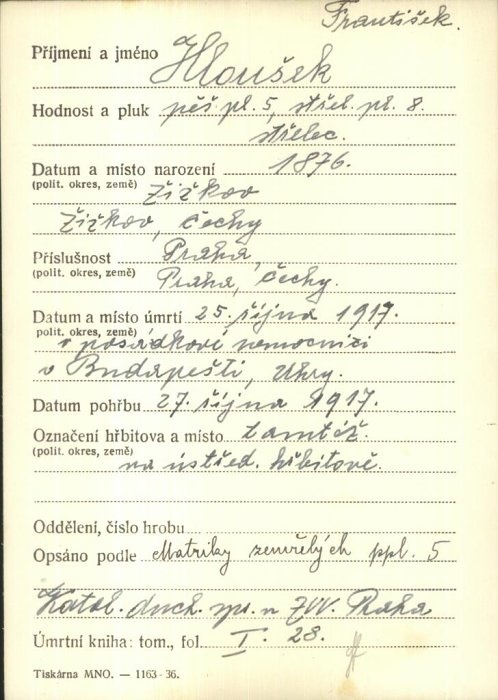 František.
Příjmení a jméno Hloušek
Hodnost a pluk pěš. pl. 5, střel. pl. 8.
střelec.
Datum a místo narození 1876.
(polit. okres, země) Žižkov
Žižkov, Čechy
Příslušnost Praha,
(polit. okres, země) Praha, Čechy.
Datum a místo úmrtí 25. října 1917.
(polit. okres, země)
v posádkové nemocnici
v Budapešti, Uhry.
Datum pohřbu 27. října 1917.
Označení hřbitova a místo tamtéž.
(polit. okres, země) na ústřed. hřbitově.
Oddělení, číslo hrobu
Opsáno podle Matriky zemřelých ppl. 5
Katol. duch. spr. u ZVV. Praha
Úmrtní kniha: tom., fol. I. 28.
Tiskárna MNO. — 1163-36.